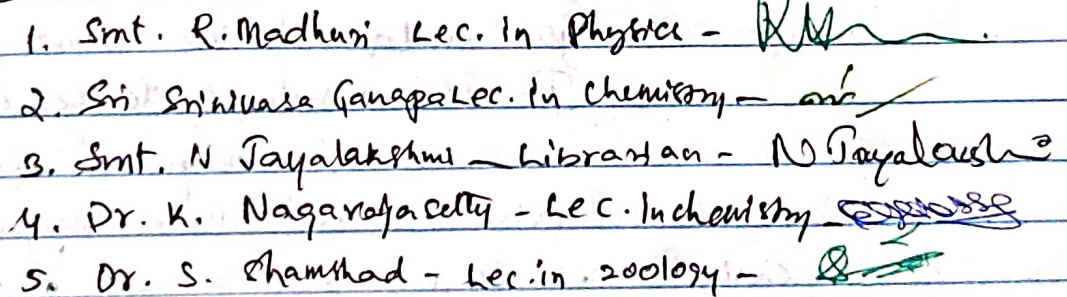 1. Smt. R. Madhuri Lec. in Physics -
2. Sri Srinivasa Ganapa Lec. in Chemistry -
3. Smt. N Jayalakshmi - Librarian - N Jayalaksh
4. Dr. K. Nagaraja Setty - Lec. In chemistry
5. Dr. S. Shamshad - Lec. in zoology -